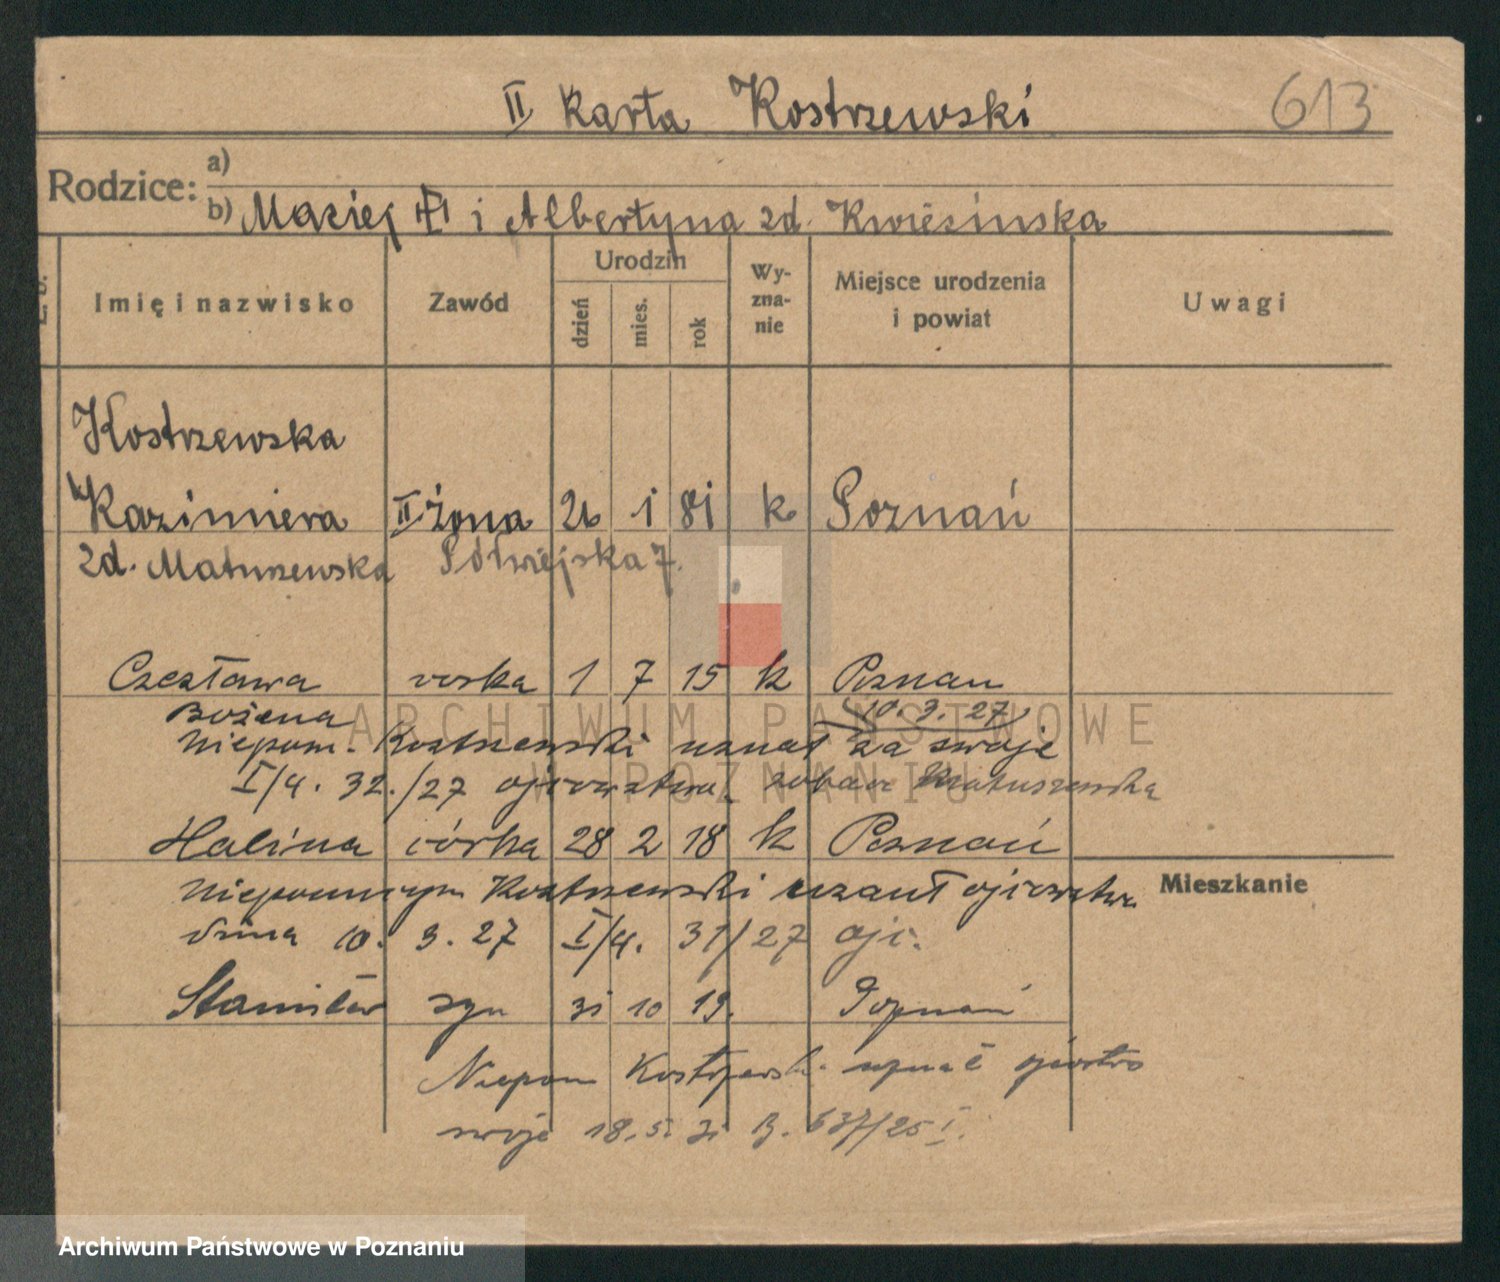 II Karta Kostrzewski 613
Rodzice: a)
b) Maciej i Albertyna zd. Kwiecinska
Imię i nazwisko Zawód Urodzin dzień mies. rok Wy-zna-nie Miejsce urodzenia i powiat Uwagi
Kostrzewska
Kazimiera II żona 26 1 81 k Poznań
zd. Matuszewska Półwiejska 7.
Czesława córka 1 7 15 k Poznan
Bożena 10. 3. 27
Niepom. Kostrzewski uznał za swoje
I/4. 32./27 ojcowstwa zobacz Matuszewska
Halina córka 28 2 18 k Poznań
Niepomucym Kostrzewski uznał ojcowstwo
dnia 10. 3. 27 I/4. 31/27 ojc.
Mieszkanie
Stanisław syn 31 10 19. Poznań
Niepom Kostrzewski uznał ojcostwo
swoje 18. 5. B. 637/25 I.
ARCHIWUM PAŃSTWOWE
W POZNANIU
Archiwum Państwowe w Poznaniu